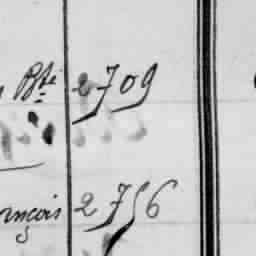 Bte 2709
ançois 2756